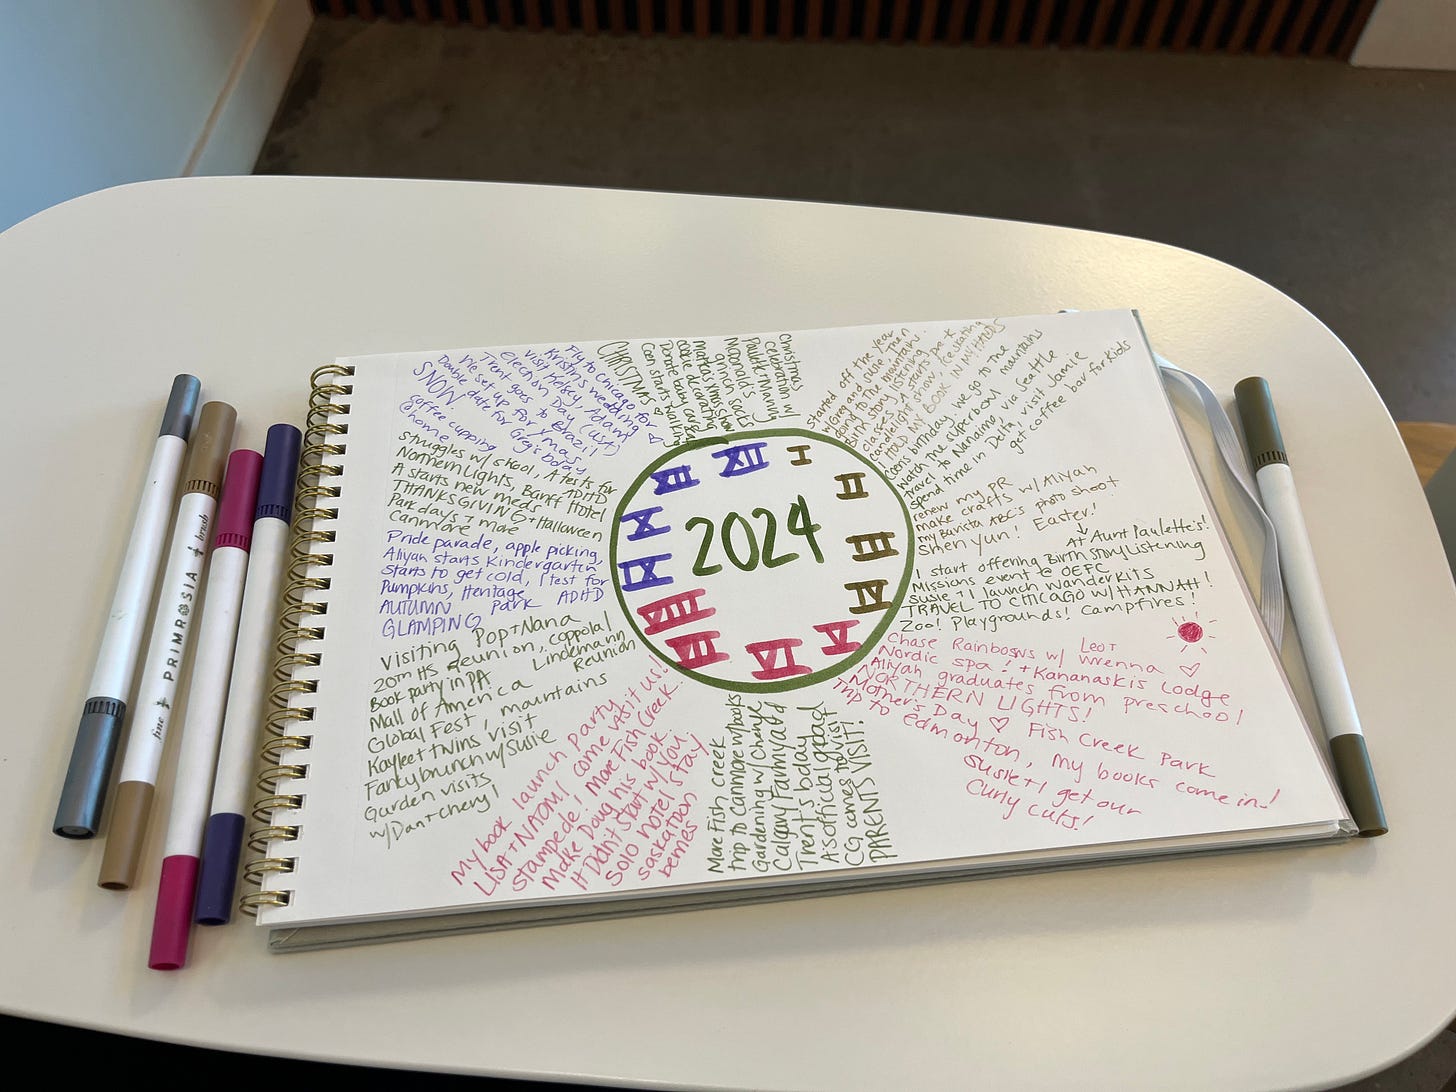 2024
I
II
III
IV
V
VI
VII
VIII
IX
X
XI
XII
started off the year
Greg and Susie! Then
Banff to the mountains.
Birth story listening
classes! A starts pre-k
I HOLD MY BOOK IN MY HANDS
Con's birthday, we go to the mountains
watch the superbowl
Travel to Nanaimo via Seattle
spend time in Delta, visit Jamie
get coffee bar for kids
renew my PR
make crafts w/ Aliyah
my Barista ABC's photo shoot
Shen Yun! Easter!
↓ At Aunt Paulette's!
I start offering Birth Story Listening
Missions event @ OEFC
Susie + I launch Wanderkits
TRAVEL TO CHICAGO w/ HANNAH!
Zoo! Playgrounds! Campfires!
Chase Rainbows w/ Leo + Wrenna
Nordic spa! + Kananaskis Lodge
Aliyah graduates from preschool
NORTHERN LIGHTS!
Mother's Day ♡ Fish Creek Park
Trip to Edmonton, my books come in!
Susie + I get our
Curly cuts!
More Fish creek
trip to Canmore w/books
Gardening w/ Cheryl
Calgary Farmyard
Trent's bday
A's official grad
CG comes to visit
PARENTS VISIT!
My book launch party
LISA + NAOMI come visit us!
Stampede! More Fish Creek.
Make Doug his book.
It Didn't Start w/ You
Solo hotel stay
Saskatoon
berries
Visiting Pop + Nana
20th HS Reunion, Coppola/
Lindemann
Reunion
Book party in PA
Mall of America
Global Fest, mountains
Kaylee + twins visit
Fancy brunch w/ Susie
Garden visits
w/ Dan + Cheryl
Pride parade, apple picking
Aliyah starts Kindergarten
Starts to get cold, I test for
ADHD
Pumpkins, Heritage Park
AUTUMN
GLAMPING
struggles w/ school, A tests for
ADHD
Northern Lights, Banff Hotel
A starts new meds
THANKSGIVING + Halloween
Park days + more
Canmore
Fly to Chicago for
Kristin's wedding
visit Kelsey, Adam
Election Day (USA)
Trent goes to Brazil
We set up for Xmas
Double date for Greg's bday
SNOW.
coffee cupping
@ home
CHRISTMAS ♡
Con starts walking
cookie decorating
grinch socks
McDonald's
Paulette + Nanny
Christmas
celebration w/
fine
PRIMROSIA
brush